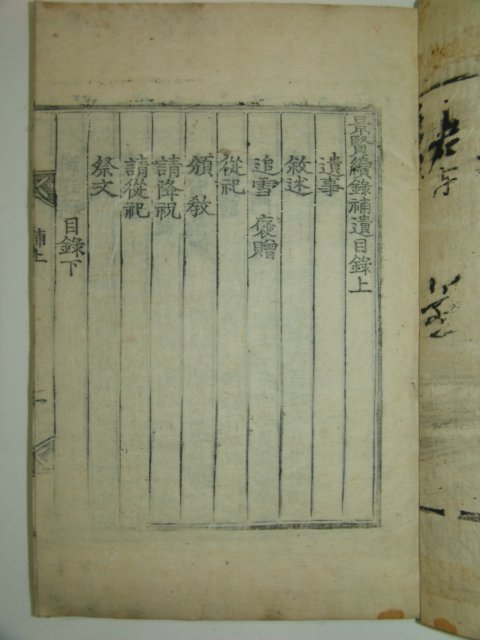 景賢續錄補遺目錄上
遺事
敘述
追雪 褒贈
從祀
頒敎
請降祝
請從祀
祭文
目錄下
補上
一